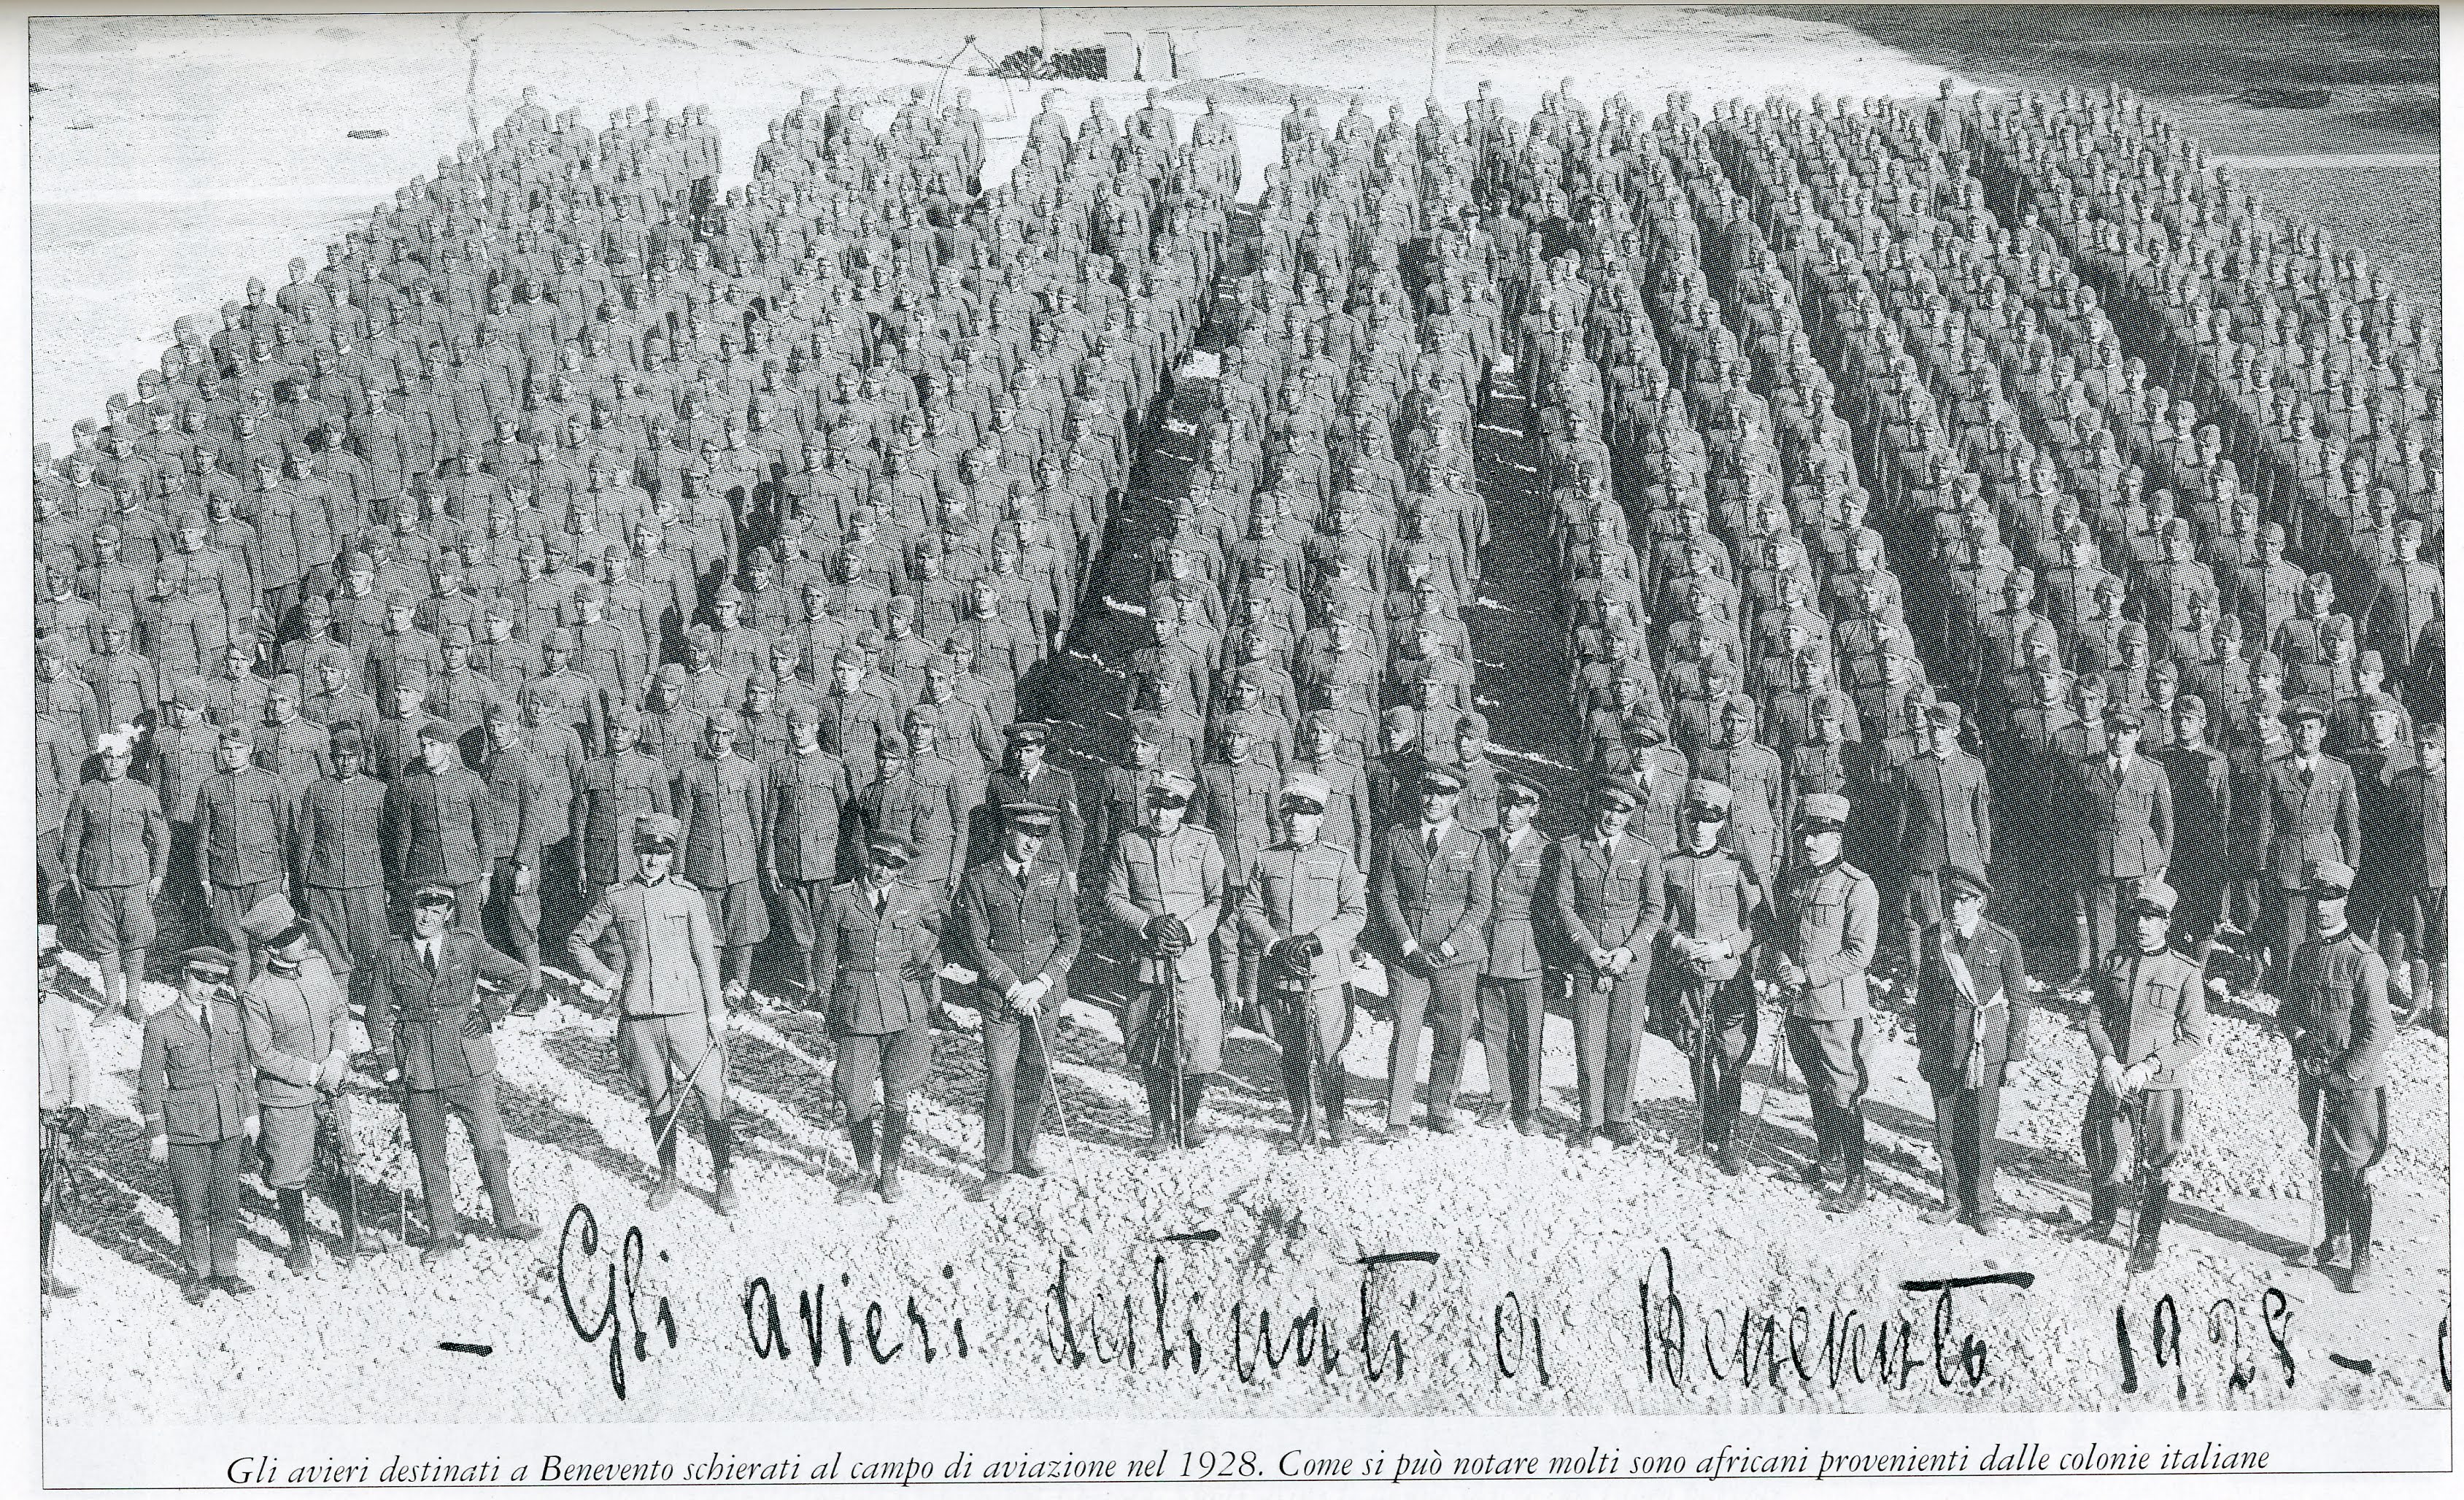 – Gli avieri destinati a Benevento 1928 –
Gli avieri destinati a Benevento schierati al campo di aviazione nel 1928. Come si può notare molti sono africani provenienti dalle colonie italiane